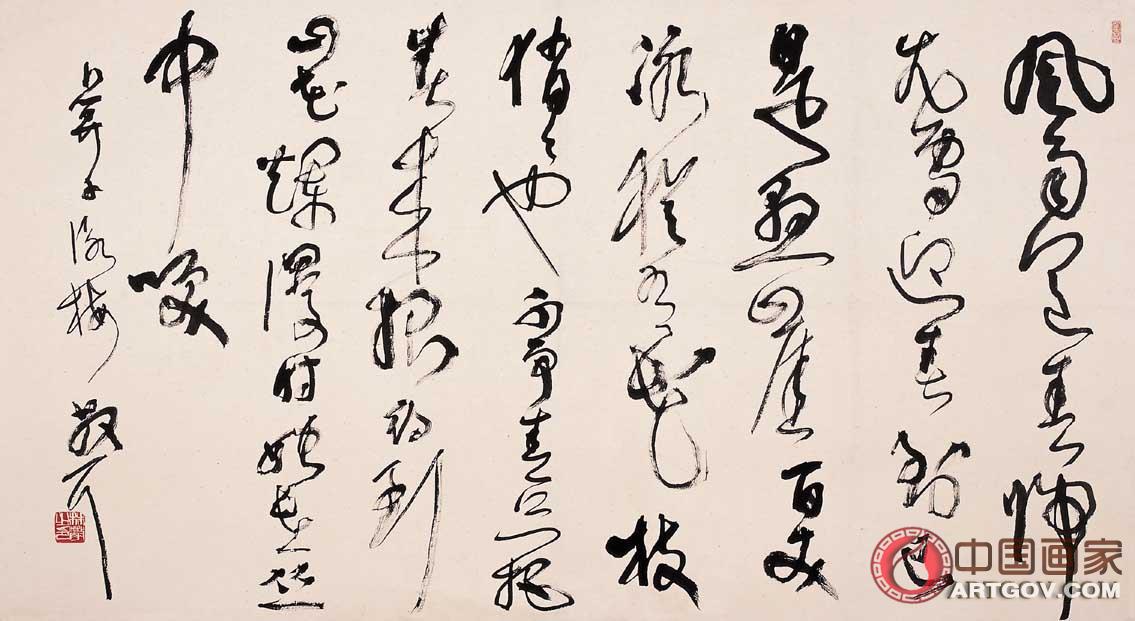 風雨送春歸
飛雪迎春到已
是懸崖百丈
冰猶有花枝
俏俏也不争春只把
春来報待到
山花爛漫時她在丛
中笑
卜算子咏梅 散耳
中国画家
ARTGOV.COM